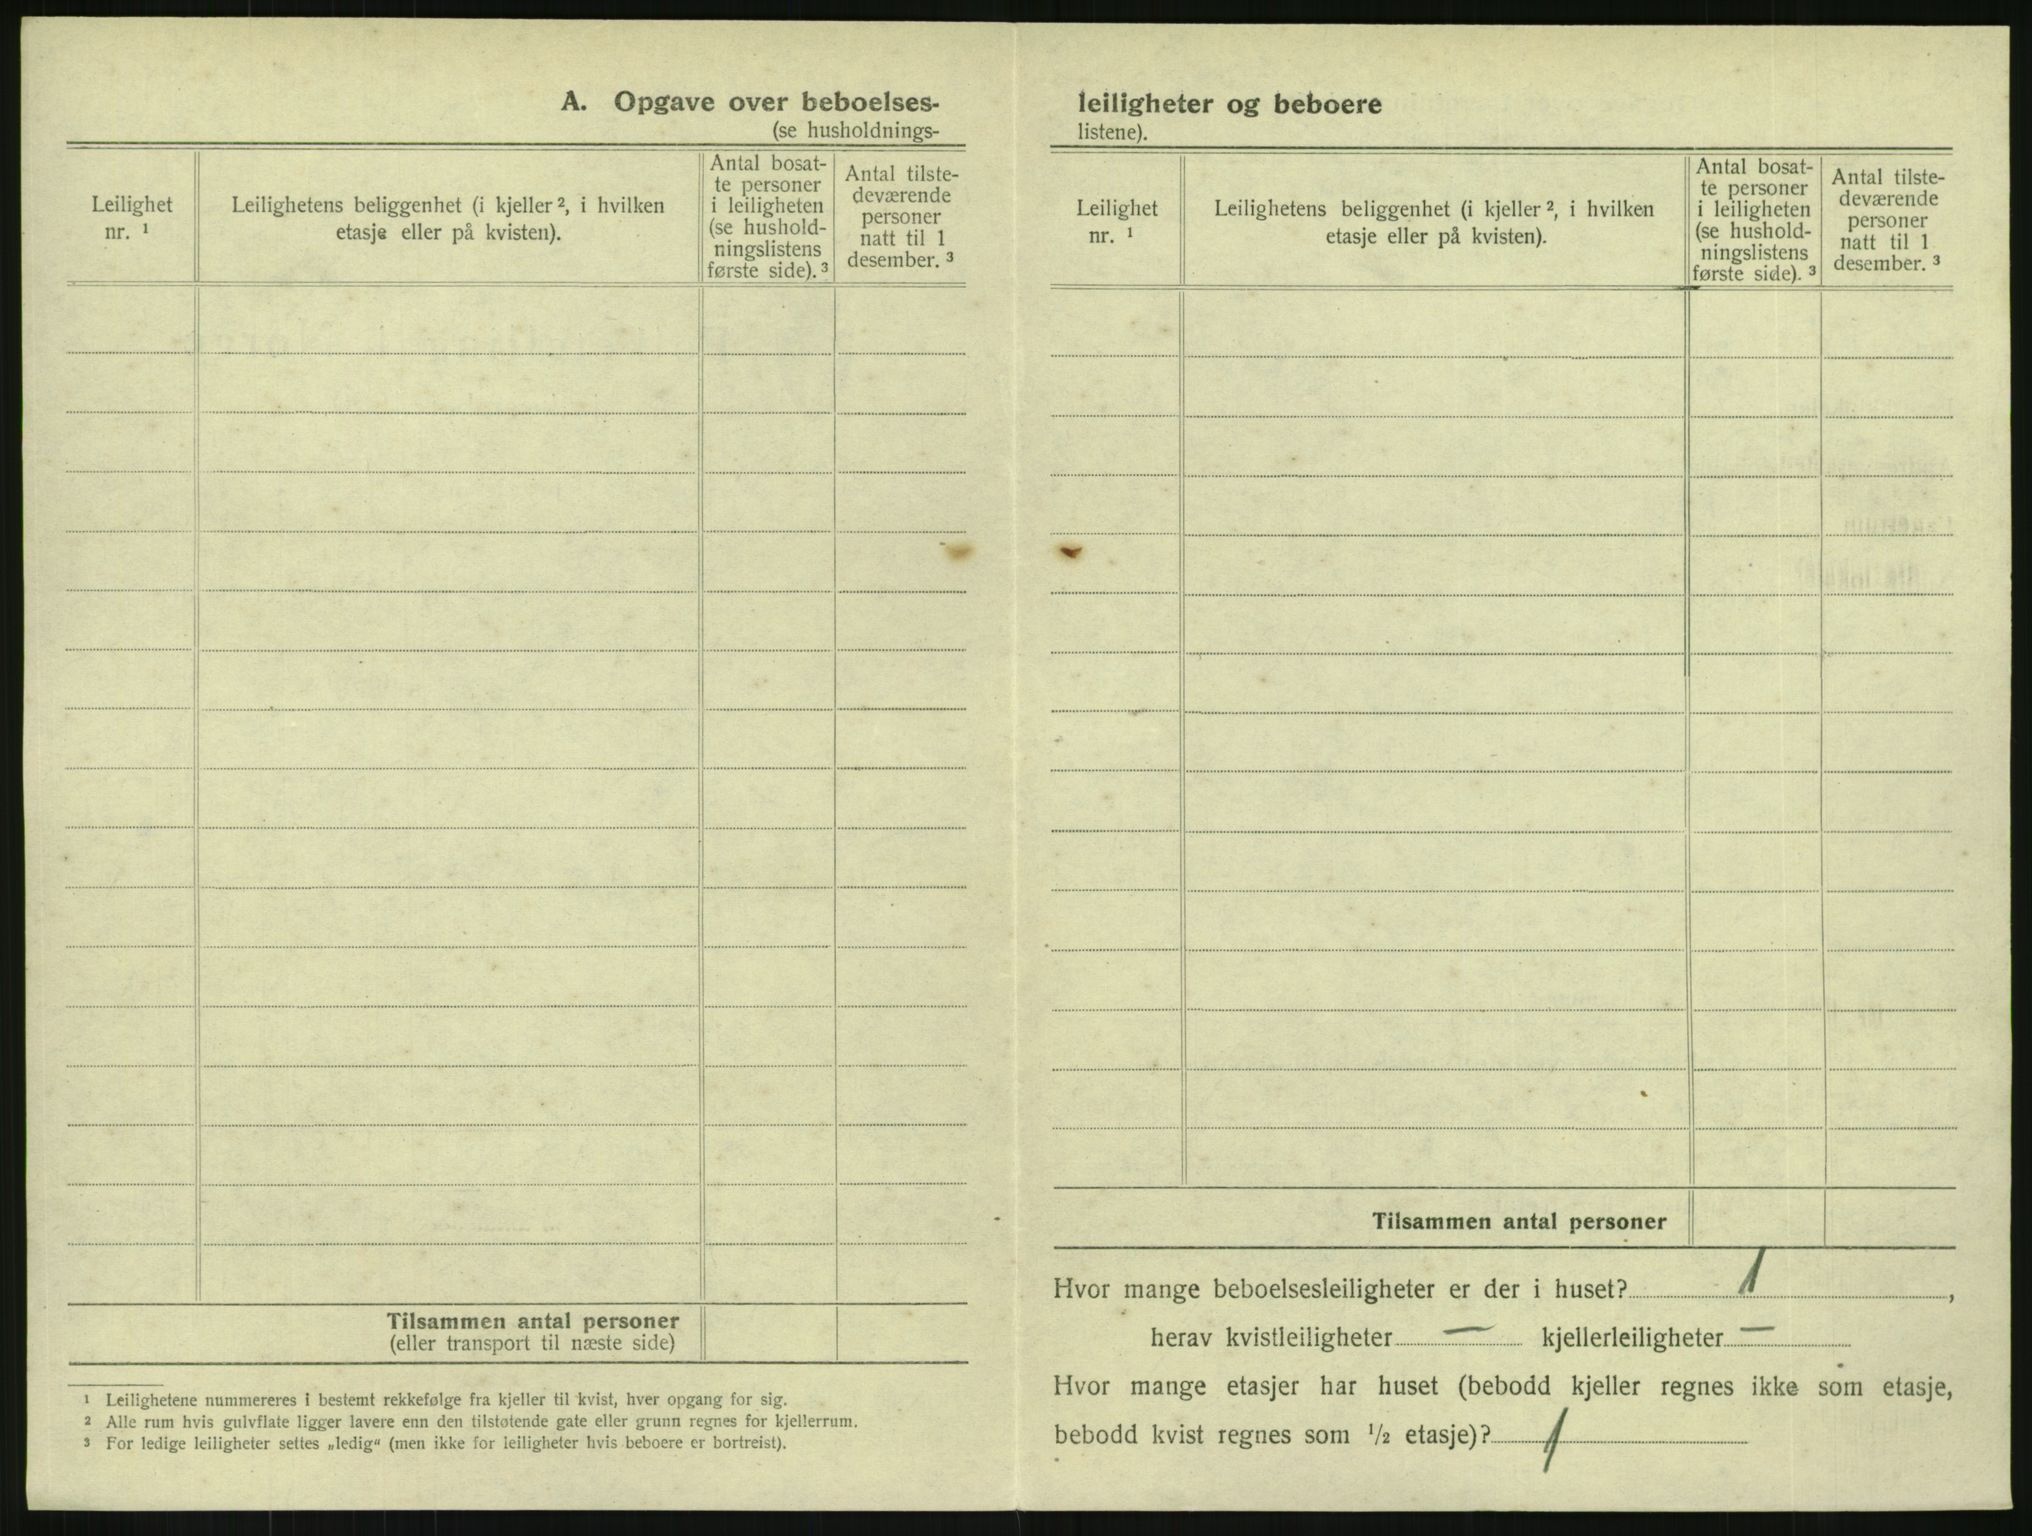 A. Opgave over beboelses-
(se husholdnings-
Leilighet
nr. ¹
Leilighetens beliggenhet (i kjeller ², i hvilken
etasje eller på kvisten).
Antal bosat-
te personer
i leiligheten
(se hushold-
ningslistens
første side). ³
Antal tilste-
deværende
personer
natt til 1
desember. ³
Tilsammen antal personer
(eller transport til næste side)
¹ Leilighetene nummereres i bestemt rekkefølge fra kjeller til kvist, hver opgang for sig.
² Alle rum hvis gulvflate ligger lavere enn den tilstøtende gate eller grunn regnes for kjellerrum.
³ For ledige leiligheter settes „ledig“ (men ikke for leiligheter hvis beboere er bortreist).
leiligheter og beboere
listene).
Leilighet
nr. ¹
Leilighetens beliggenhet (i kjeller ², i hvilken
etasje eller på kvisten).
Antal bosat-
te personer
i leiligheten
(se hushold-
ningslistens
første side). ³
Antal tilste-
deværende
personer
natt til 1
desember. ³
Tilsammen antal personer
Hvor mange beboelsesleiligheter er der i huset? 1,
herav kvistleiligheter — kjellerleiligheter —
Hvor mange etasjer har huset (bebodd kjeller regnes ikke som etasje,
bebodd kvist regnes som ½ etasje)? 1